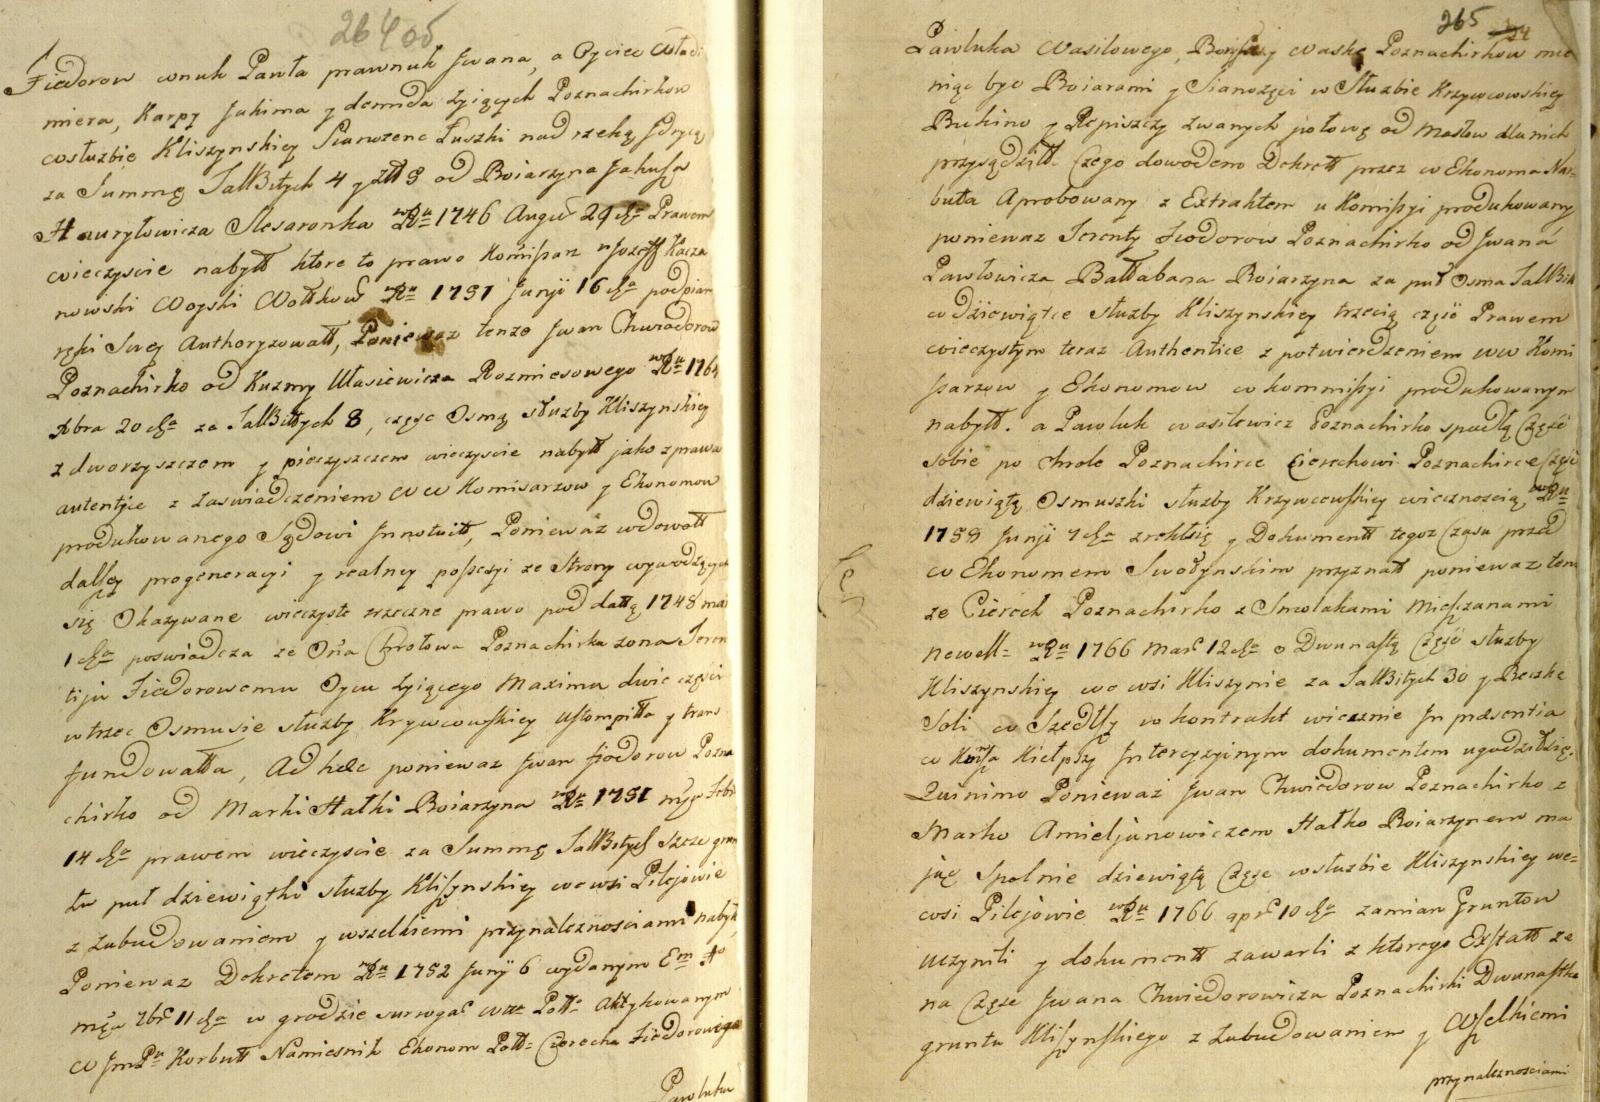 264 05
Fiedorow wnuk Pawła prawnuk Jwana, a Oyciec Władi
miera, Karpy Jakima y demida żyiących Poznachirkow
wsłuzbie Kliszynskiey Sianozenc Łuszki nad rzeką Jdrycą
za Summę TallBitych 4 y Złł 8 od Boiarzyna Jakusza
Hauryłowicza Slesaronka wRu 1746 August 29 dnia Prawem
wieczyscie nabyłł ktore to prawo Komissarz Jozeff Kacza
nowski Woyski Wołkow wRu 1751 Junji 16 dnia podpisem
ręki Swey Authoryzowałł, Poniewaz tenze Jwan Chwiedorow
Poznachirko od Kuzmy Ułasiewicza Rozmiesowego wRu 1764
Xbra 20 dnia za TallBitych 8, częsc Osmą służby Kliszynskiey
z dworzyszczem y pieczyszczem wieczyscie nabyłł jako z prawa
autentyce z zaswiadczeniem WW Komisarzow y Ekonomow
produkowanego Sądowi Jnnotuitt, Poniewaz wdowałł
dalszey progeneracyi y realney possesyi ze Strony wywodzących
się Okazywane wieczyste zrzeczne prawo pod dattą 1748 mai
1 dnia poswiadcza ze Ona Chrolowa Poznachirka zona Teren
tiju Fiedorowemu Oycu żyiącego Maximu dwie części
w trzec Osmusie służby Krywcowskiey Ustompiła y trans
fundowałła, Ad haec poniewaz Jwan Fiodorow Pozna
chirko od Marki Hałki Boiarzyna wRu 1751 mca Febr
14 dnia prawem wieczyscie za Summę TallBitych Szesc grun
tu puł dziewiątki służby Kliszynskiey we wsi Pilejowie
z zabudowaniem y wszelkiemi przynaleznosciami nabył,
Poniewaz Dekretem wRu 1752 Junij 6 wydanym Em Ao
mca 7br 11 dnia w grodzie surrogat Połł Aktykowanym
W Jm Pu Korbutt Namiesnik Ekonom Połł Cierecha Fiedorowicza
Pawluka
265
Pawluka Wasilowego, Boysaj Waska Poznachirkow mie
niąc byc Boiarami y Sianozęci w Słuzbie Krzywcowskiey
Bukino y Repiszczy zwanych połowę od Masłow dla nich
przysądził Czego dowodem Dekrett przez W Ekonoma Nar=
buta Aprobowany z Extraktem u Komissyi produkowany
poniewaz Terenty Fiodorow Poznachirko od Jwana
Pawłowicza Bałłabana Boiarzyna za puł Osma TallBit
w dziewiątce służby Kliszynskiey trzecią część Prawem
wieczystym teraz Authentice z potwierdzeniem WW Komi
ssarzow y Ekonomow w kommissyi produkowanym
nabyłł. a Pawluk Wasilewicz Poznachirko spadłą Część
sobie po Chrole Poznachirce Cierechowi Poznachirce Częsć
dziewiątą Osmuszki służby Krzywcowskiey wiecznoscią wRu
1758 Junji 7 dnia zrzekłsię y Dokumentt tegoz Czasu przed
W Ekonomem Swołynskim przyznał poniewaz ten
ze Cierech Poznachirko z Smolakami Mieszczanami
Newell= wRu 1766 Mar 12 dnia o Dwunastą Część służby
Kliszynskiey we wsi Kliszynie za TallBitych 30 y Beczkę
Soli w Szedłszy w kontrakt wiecznie Jn praesentia
Kiełpszy Jntercyzyinym dokumentem ugodziłsię.
Quinimo Poniewaz Jwan Chwiedorow Poznachirko z
Marko Amieljanowiczem Hałko Boiarzynem ma
jąc Spolnie dziewiątą Częsc w słuzbie Kliszynskiey we=
wsi Pilejowie wRu 1766 apr 10 dnia zamian Gruntow
uczynili y dokumentt zawarli z ktorego Exstatt ze
na Częsc Jwana Chwiedorowicza Poznachirki Dwunastka
gruntu Kliszynskiego z Zabudowaniem y Wszelkiemi
przynaleznosciami